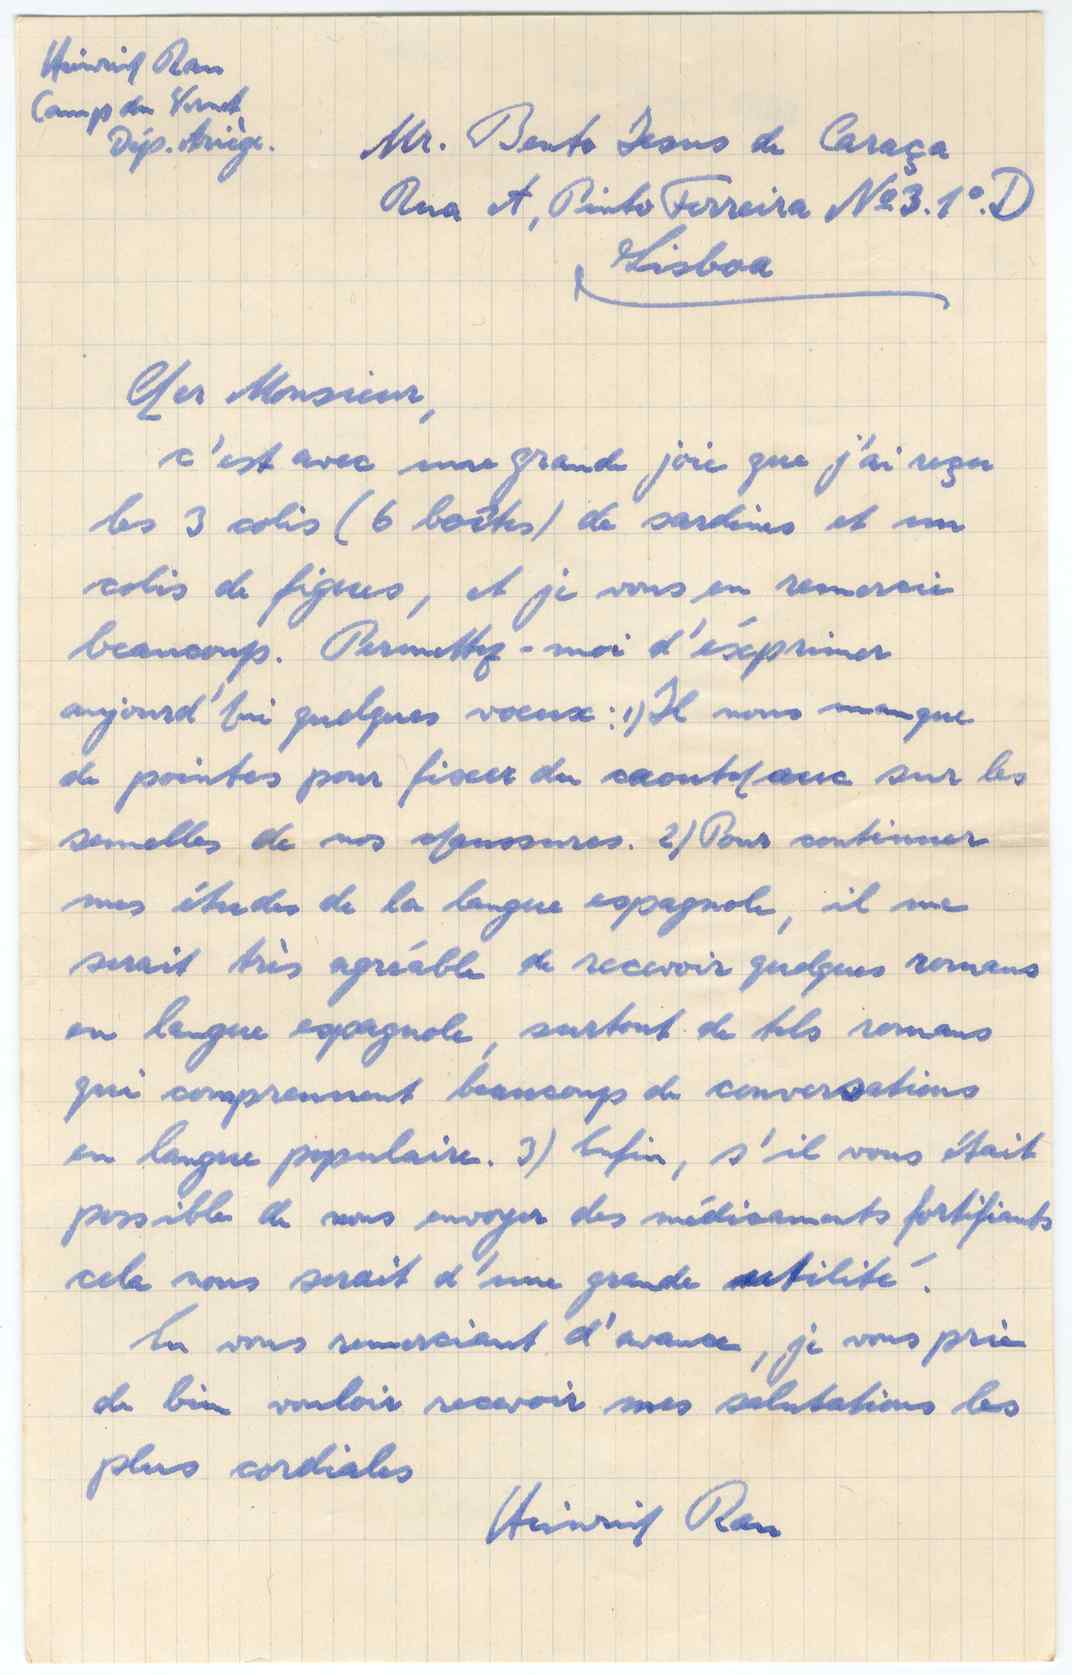 Heinrich Rau
Camp du Vernet
Dép. Ariège.
Mr. Bento Jesus de Caraça
Rua A, Pinto Ferreira Nº3.1º.D
Lisboa
Cher Monsieur,
c'est avec une grande joie que j'ai reçu
les 3 colis (6 boîtes) de sardines et un
colis de figues, et je vous en remercie
beaucoup. Permettez-moi d'éxprimer
aujourd'hui quelques voeux: 1) Il nous manque
de pointes pour fixer du caoutchouc sur les
semelles de nos chaussures. 2) Pour continuer
mes études de la langue espagnole, il me
serait très agréable de recevoir quelques romans
en langue espagnole, surtout de tels romans
qui comprennent beaucoup de conversations
en langue populaire. 3) Enfin, s'il vous était
possible de nous envoyer des médicaments fortifiants
cela nous serait d'une grande utilité.
En vous remerciant d'avance, je vous prie
de bien vouloir recevoir mes salutations les
plus cordiales
Heinrich Rau